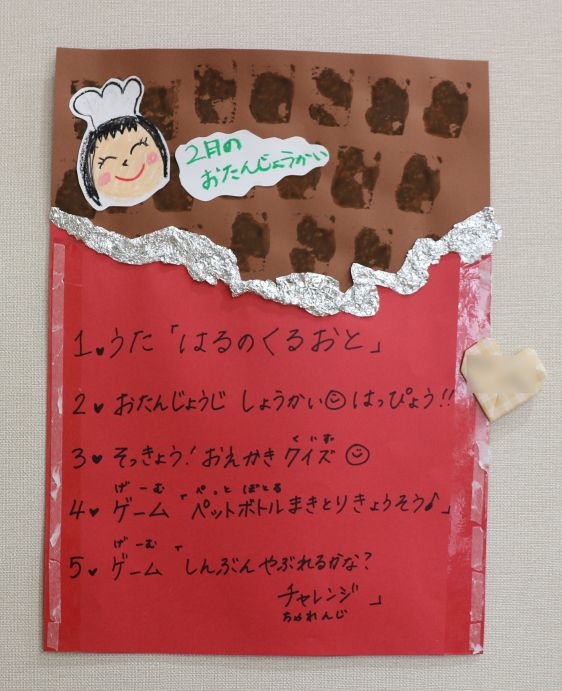 2月の
おたんじょうかい
1♥うた「はるのくるおと」
2♥おたんじょうじ しょうかい☺はっぴょう!!
くいず
3♥そっきょう!おえかきクイズ☺
げーむ ぺっとぼとる
4♥ゲーム「ペットボトルまきとりきょうそう♪」
げーむ
5♥ゲーム「しんぶんやぶれるかな?
チャレンジ」
ちゃれんじ